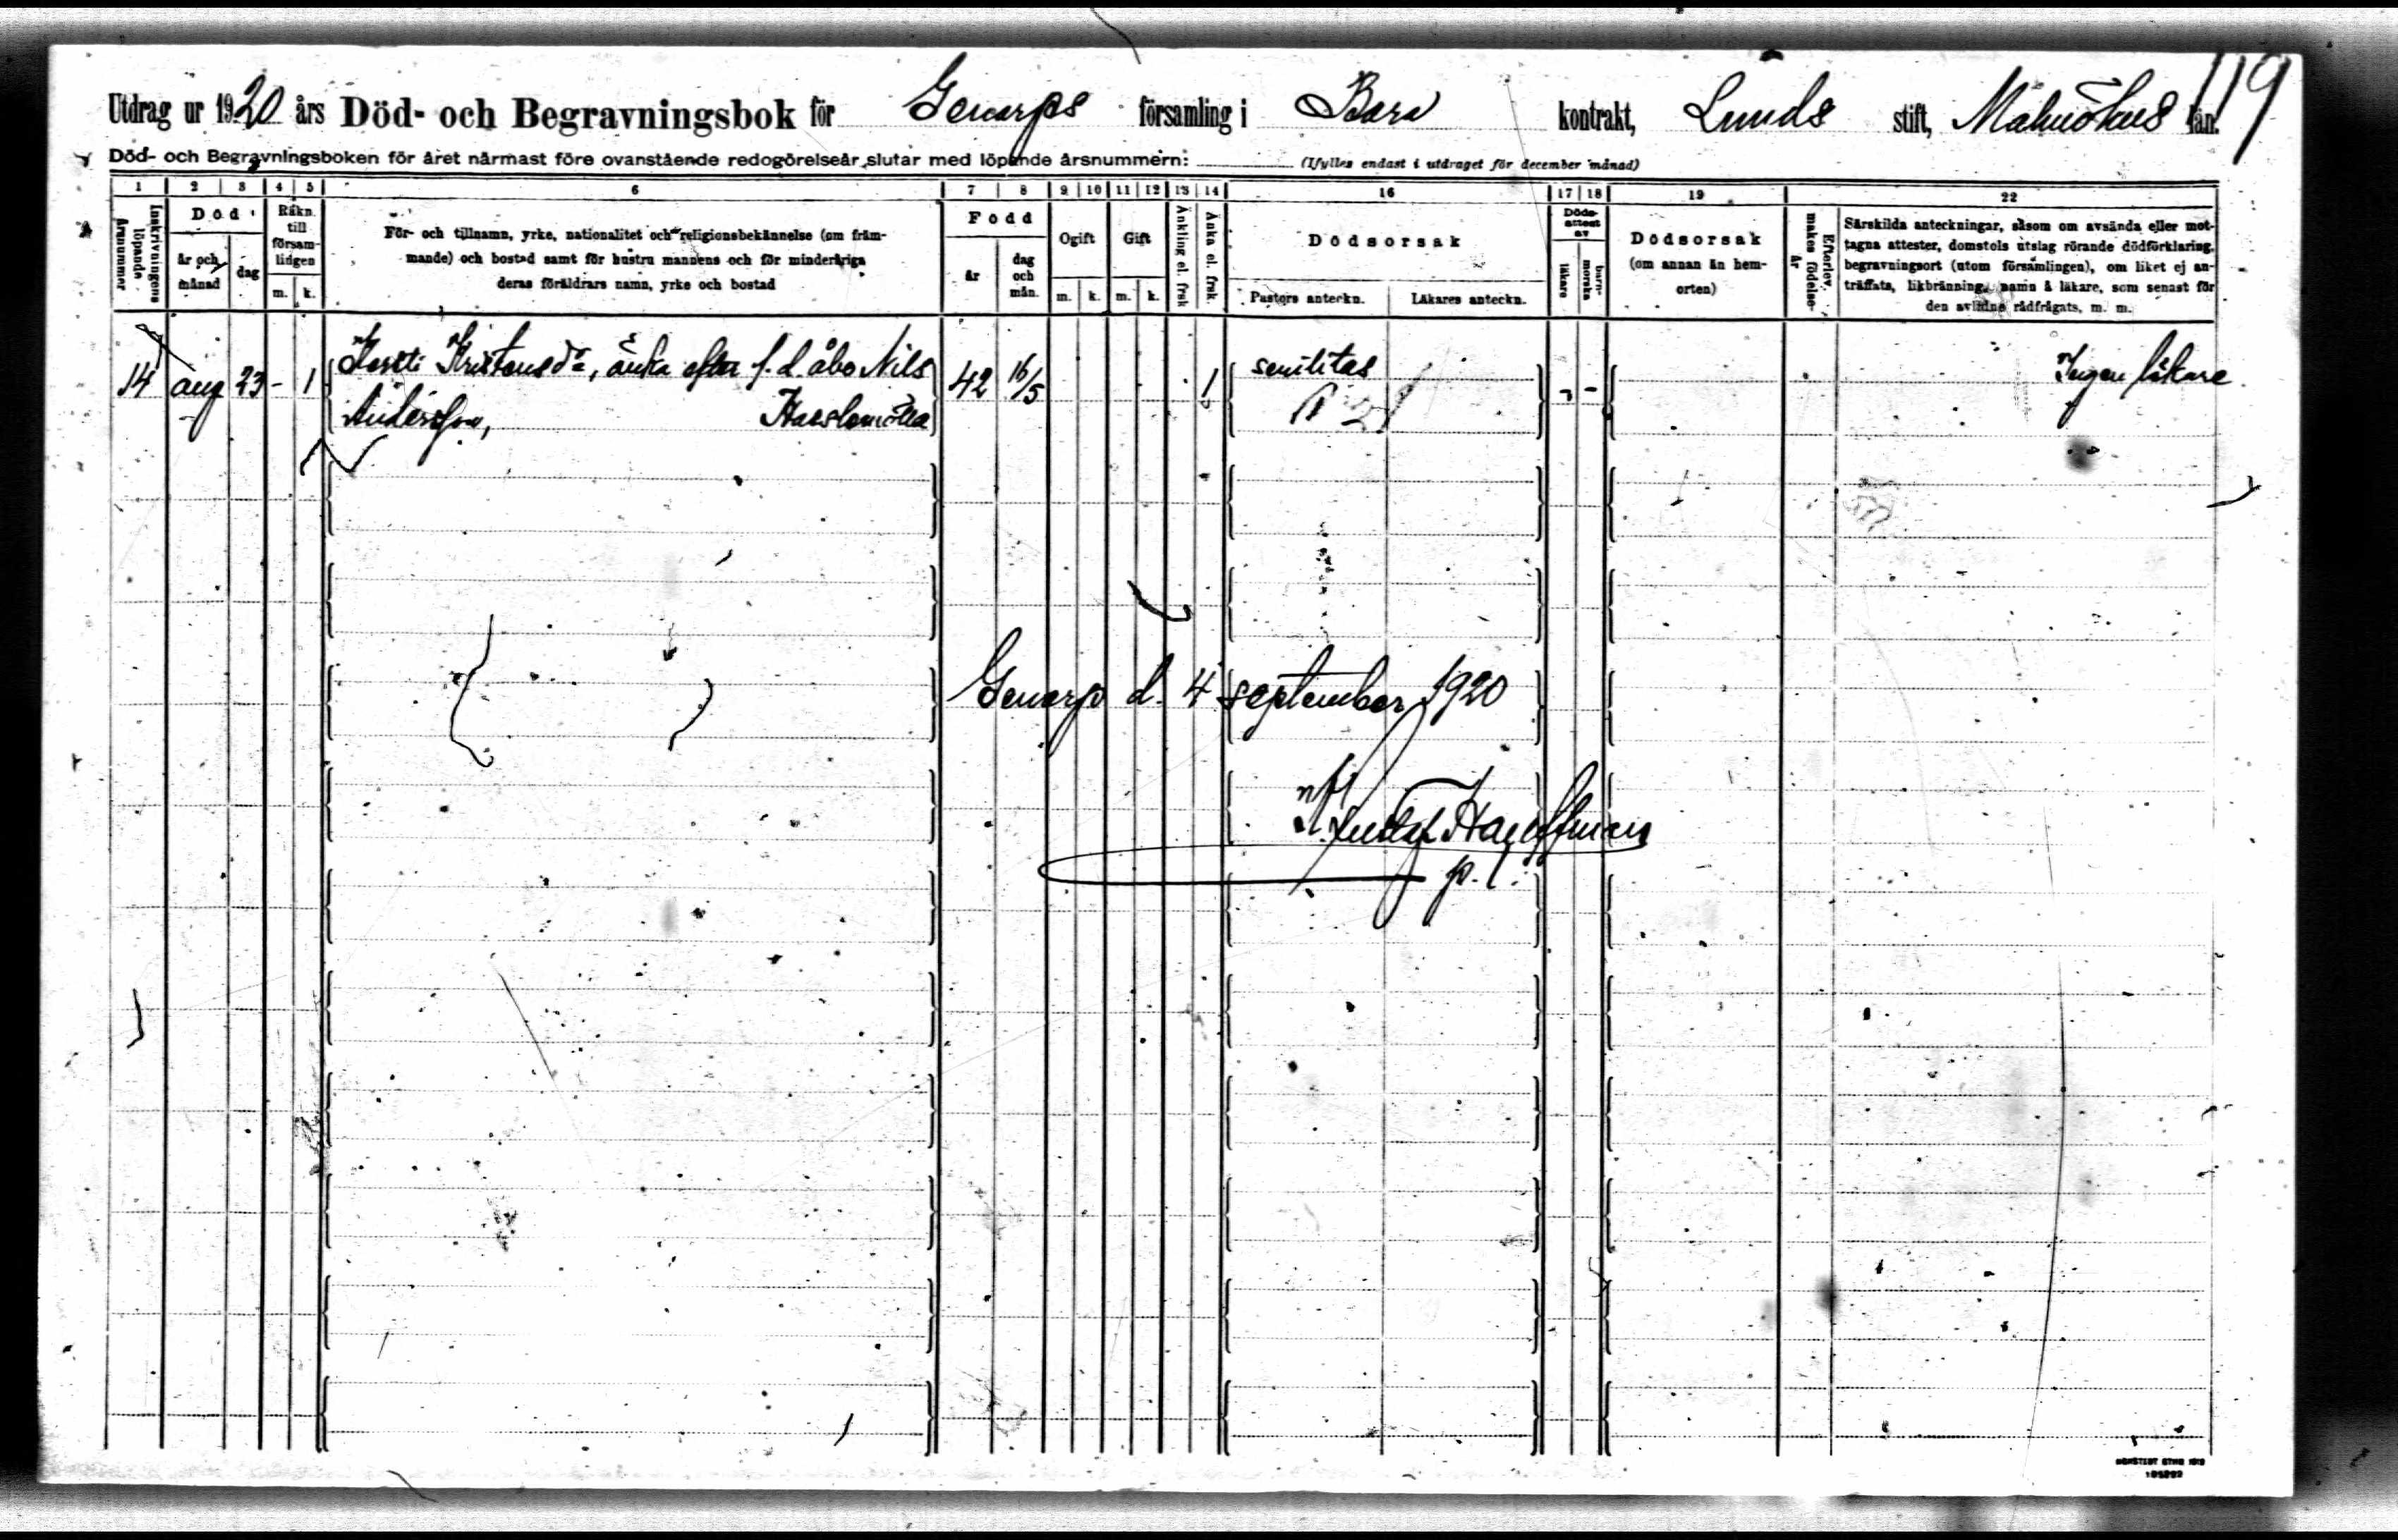 119
Utdrag ur 1920 års Död- och Begravningsbok för Genarps församling i Bara kontrakt, Lunds stift, Malmöhus län.
Död- och Begravningsboken för året närmast före ovanstående redogörelseår slutar med löpande årsnummern: (Ifylles endast i utdraget för december månad)
1 2 3 4 5 6 7 8 9 10 11 12 13 14 16 17 18 19 22
Inskrivningens löpande årsnummer
Död
år och månad
dag
Räkn. till församlingen
m. k.
För- och tillnamn, yrke, nationalitet och religionsbekännelse (om främ-
mande) och bostad samt för hustru mannens och för minderåriga
deras föräldrars namn, yrke och bostad
Född
år
dag och mån.
Ogift
m. k.
Gift
m. k.
Änkling el. frsk.
Änka el. frsk.
Dödsorsak
Pastors anteckn. Läkares anteckn.
Dödsattest av
läkare
barnmorska
Dödsorsak
(om annan än hem-
orten)
Efterlev. makes födelseår
Särskilda anteckningar, såsom om avsända eller mot-
tagna attester, domstols utslag rörande dödförklaring,
begravningsort (utom församlingen), om liket ej an-
träffats, likbränning, namn å läkare, som senast för
den avlidne rådfrågats, m. m.
14 aug 23 - 1 Kersti Kristensdr, änka efter f. d. åbo Nils 42 16/5 1 senilitas - - Ingen läkare
Andersson,
Genarp d. 4 september 1920
p. l.